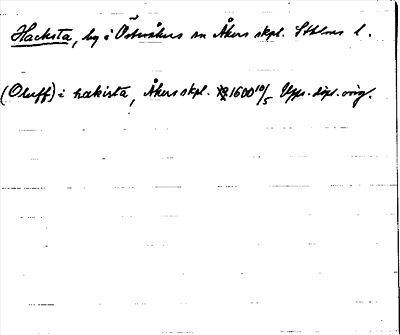 Hacksta, by i Österåkers sn Åkers skpl. Sthlms l.
(Oluff) i hakista, Åkers skpl. 1600 10/5 Upps. dipl. orig.